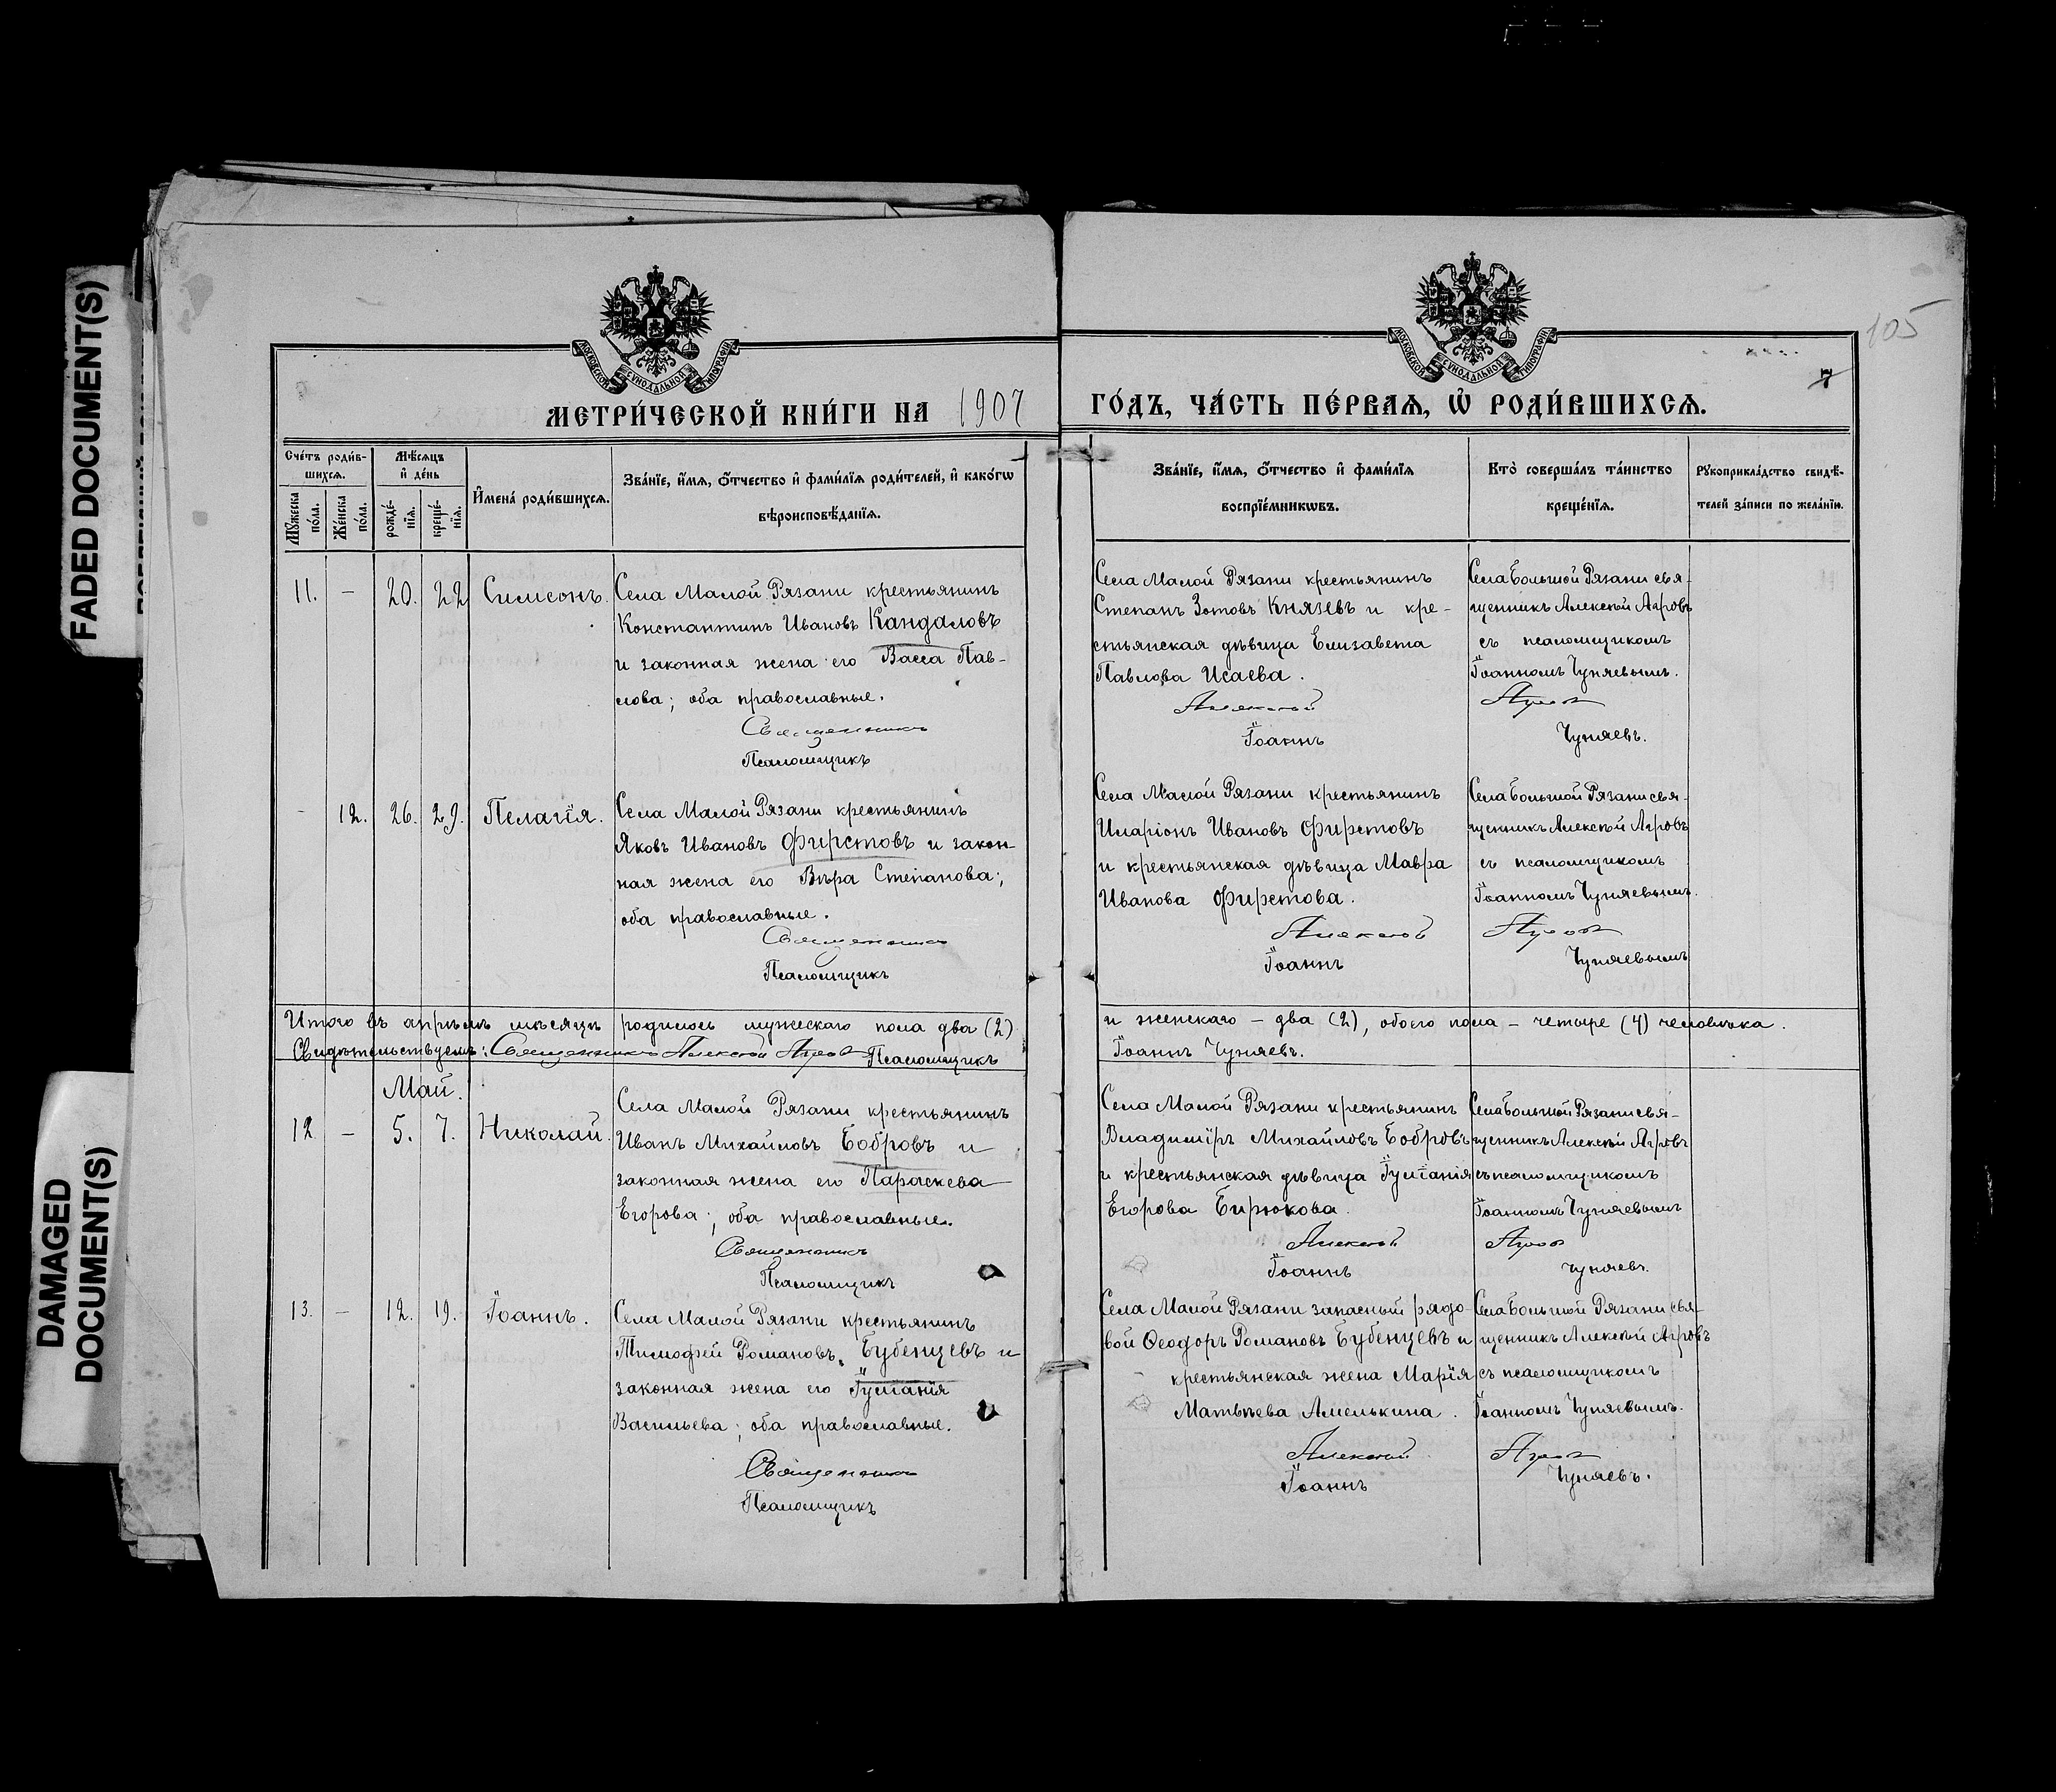 FADED DOCUMENT(S)
DAMAGED
DOCUMENT(S)
105
7
МОСКОВСКОЙ СѴНОДАЛЬНОЙ ТИПОГРАФІИ
МОСКОВСКОЙ СѴНОДАЛЬНОЙ ТИПОГРАФІИ
МЕТРИ́ЧЕСКОЙ КНИ́ГИ НА 1907 ГО́ДЪ, ЧА́СТЬ ПЕ́РВАѦ, Ѽ РОДИ́ВШИХСѦ.
Сче́тъ роди́в-
шихсѧ.
Мꙋжеска
по́ла.
Же́нска
по́ла.
Мѣ́сѧцъ
и҆ де́нь
рожде́-
нїѧ.
креще́-
нїѧ.
И҆мена̀ роди́вшихсѧ.
Зва́нїе, и҆́мѧ, ѻ҆́тчество и҆ фами́лїѧ роди́телей, и҆ како́гѡ
вѣроисповѣ́данїѧ.
Зва́нїе, и҆́мѧ, ѻ҆́тчество и҆ фами́лїѧ
воспрїе́мникѡвъ.
Кто̀ соверша́лъ та́инство
креще́нїѧ.
Рꙋкоприкла́дство свидѣ́-
телей за́писи по жела́нїю.
11. – 20. 22 Симеонъ.
Села Малой Рязани крестьянинъ
Константинъ Ивановъ Кандаловъ
и законная жена его Васса Пав-
лова; оба православные.
Священникъ
Псаломщикъ
Села Малой Рязани крестьянинъ
Степанъ Зотовъ Князевъ и кре-
стьянская дѣвица Елизавета
Павлова Исаева.
Алексѣй
Іоаннъ
Села Большой Рязани свя-
щенникъ Алексѣй Агровъ
съ псаломщикомъ
Іоанномъ Чуняевымъ.
Агровъ
Чуняевъ.
- 12. 26. 29. Пелагія.
Села Малой Рязани крестьянинъ
Яковъ Ивановъ Фирстовъ и закон-
ная жена его Вѣра Степанова;
оба православные.
Священникъ
Псаломщикъ
Села Малой Рязани крестьянинъ
Иларіонъ Ивановъ Фирстовъ
и крестьянская дѣвица Мавра
Иванова Фирстова.
Алексѣй
Іоаннъ
Села Большой Рязани свя-
щенникъ Алексѣй Агровъ
съ псаломщикомъ
Іоанномъ Чуняевымъ.
Агровъ
Чуняевымъ
Итого въ апрѣлѣ мѣсяцѣ родилось мужескаго пола два (2) и женскаго – два (2), обоего пола – четыре (4) человѣка.
Свидѣтельствуемъ: Священникъ Алексѣй Агровъ Псаломщикъ Іоаннъ Чуняевъ.
Май.
12 – 5. 7. Николай.
Села Малой Рязани крестьянинъ
Иванъ Михайловъ Бобровъ и
законная жена его Параскева
Егорова; оба православные.
Священникъ
Псаломщикъ
Села Малой Рязани крестьянинъ
Владиміръ Михайловъ Бобровъ
и крестьянская дѣвица Іуліанія
Егорова Бирюкова.
Алексѣй
Іоаннъ
Села Большой Рязани свя-
щенникъ Алексѣй Агровъ
съ псаломщикомъ
Іоанномъ Чуняевымъ
Агровъ
Чуняевъ.
13. – 12. 19. Іоаннъ.
Села Малой Рязани крестьянинъ
Тимофей Романовъ Бубенцевъ и
законная жена его Іуліанія
Васильева; оба православные.
Священникъ
Псаломщикъ
Села Малой Рязани запасный рядо-
вой Ѳеодоръ Романовъ Бубенцевъ и
крестьянская жена Марія
Матвѣева Амелькина.
Алексѣй
Іоаннъ
Села Большой Рязани свя-
щенникъ Алексѣй Агровъ
съ псаломщикомъ
Іоанномъ Чуняевымъ.
Агровъ
Чуняевъ.